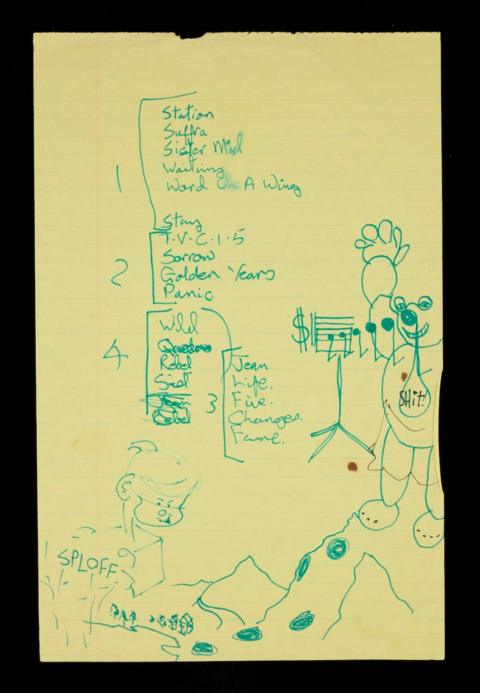 Station
Suffra
Sister Mid
Waiting
Word On A Wing
1
Stay
T.V.C.1.5
Sorrow
2
Golden Years
Panic
Wild
4
Rebel
Jean
Life.
3
Five.
Changes.
Fame.
$
SHIT!
SPLOFF